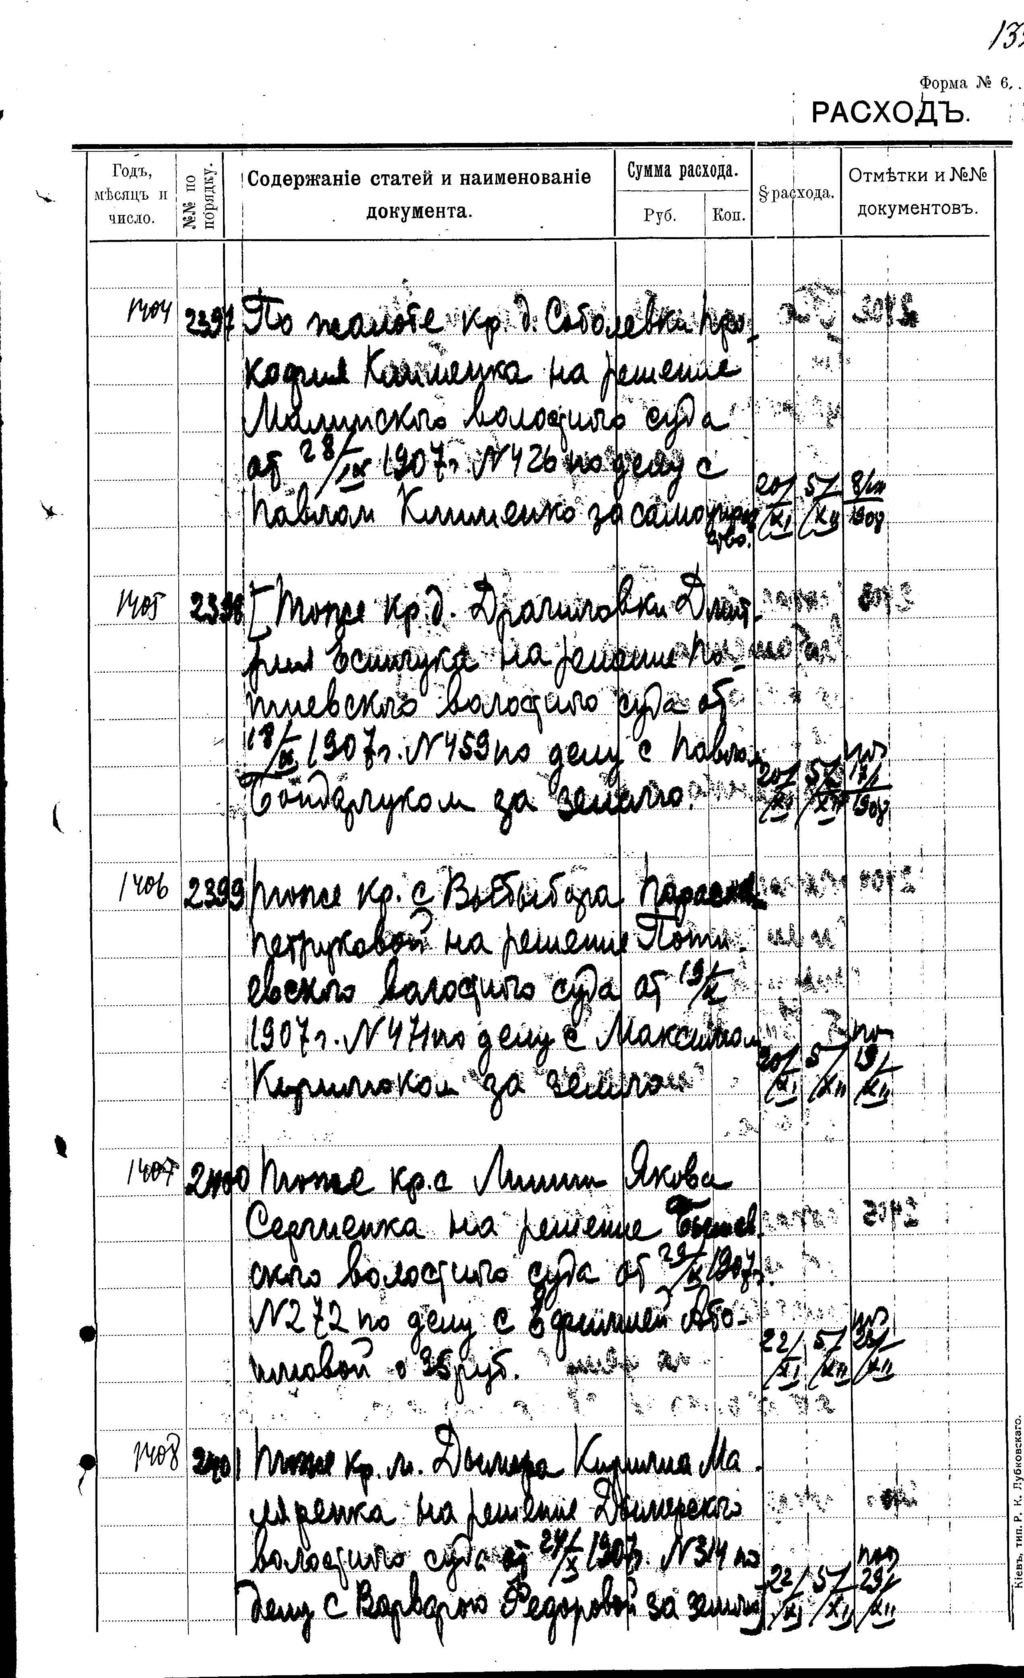 Форма № 6.
РАСХОДЪ.
Годъ, мѣсяцъ и число.
№№ по порядку.
Содержаніе статей и наименованіе документа.
Сумма расхода.
Руб. Коп.
§ расхода.
Отмѣтки и №№ документовъ.
1404 2397 По жалобе кр. д. Соболевки Про-
кофия Клименка на решение
волостного суда
от 28/IX 1907 г. N 426 по делу с
Павлом Клименко за самоуправ
ство. 20/XI 5/XII 1908
1405 2398 Тоже кр. д. Дмит-
рия на решение По-
тиевского волостного суда от
18/IX 1907 г. N 459 по делу с Павлом
Бондарчуком за землю. 20/XI 5/XII 1908
1406 2399 Тоже кр. с. Параски
Петруковой на решение Поти-
евского волостного суда от 19/IX
1907 г. N 471 по делу с Максимом
за землю 20/XI 5/XII 19/XII
1407 2400 Тоже кр. с. Якова
Сергиенка на решение Бышев
ского волостного суда от 29/IX 1907 г.
N 272 по делу с
о 35 руб. 22/XI 5/XII
1408 2401 Тоже кр. м. Дымера Кирилла Ма-
ляренка на решение Дымерского
волостного суда от 24/X 1907 г. N 314 по
делу с Варварою Федоровой за землю 22/XI 5/XII 29/XII
Кіевъ, тип. Р. К. Лубковскаго.